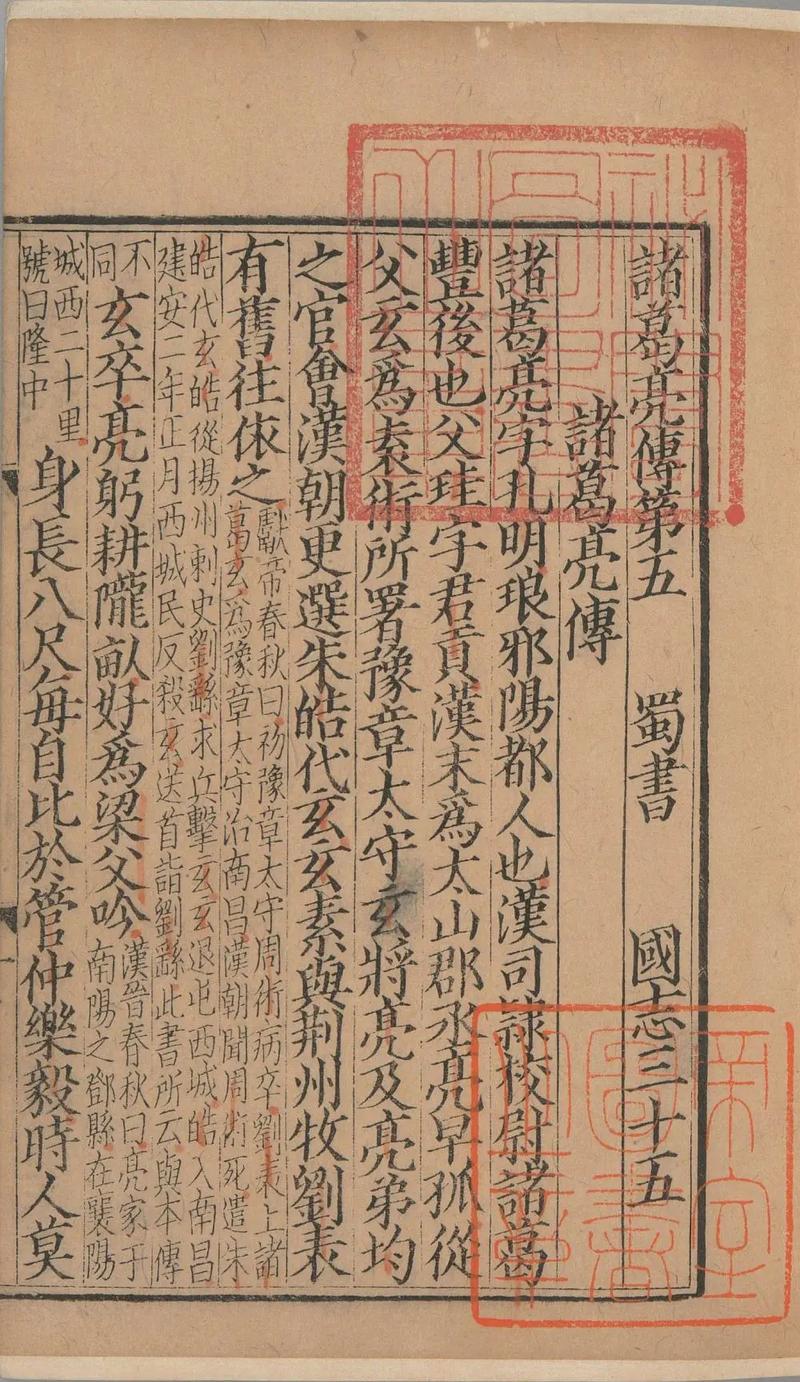 諸葛亮傳第五　蜀書　國志三十五
諸葛亮傳
諸葛亮字孔明琅邪陽都人也漢司隸校尉諸葛
豐後也父珪字君貢漢末爲太山郡丞亮早孤從
父玄爲袁術所署豫章太守玄將亮及亮弟均
之官會漢朝更選朱皓代玄玄素與荆州牧劉表
有舊往依之
獻帝春秋曰初豫章太守周術病卒劉表上諸
葛玄爲豫章太守治南昌漢朝聞周術死遣朱
皓代玄皓從揚州刺史劉繇求兵擊玄玄退屯西城皓入南昌
建安二年正月西城民反殺玄送首詣劉繇此書所云與本傳
不
同
玄卒亮躬耕隴畝好爲梁父吟
漢晉春秋曰亮家于
南陽之鄧縣在襄陽
城西二十里
號曰隆中
身長八尺每自比於管仲樂毅時人莫